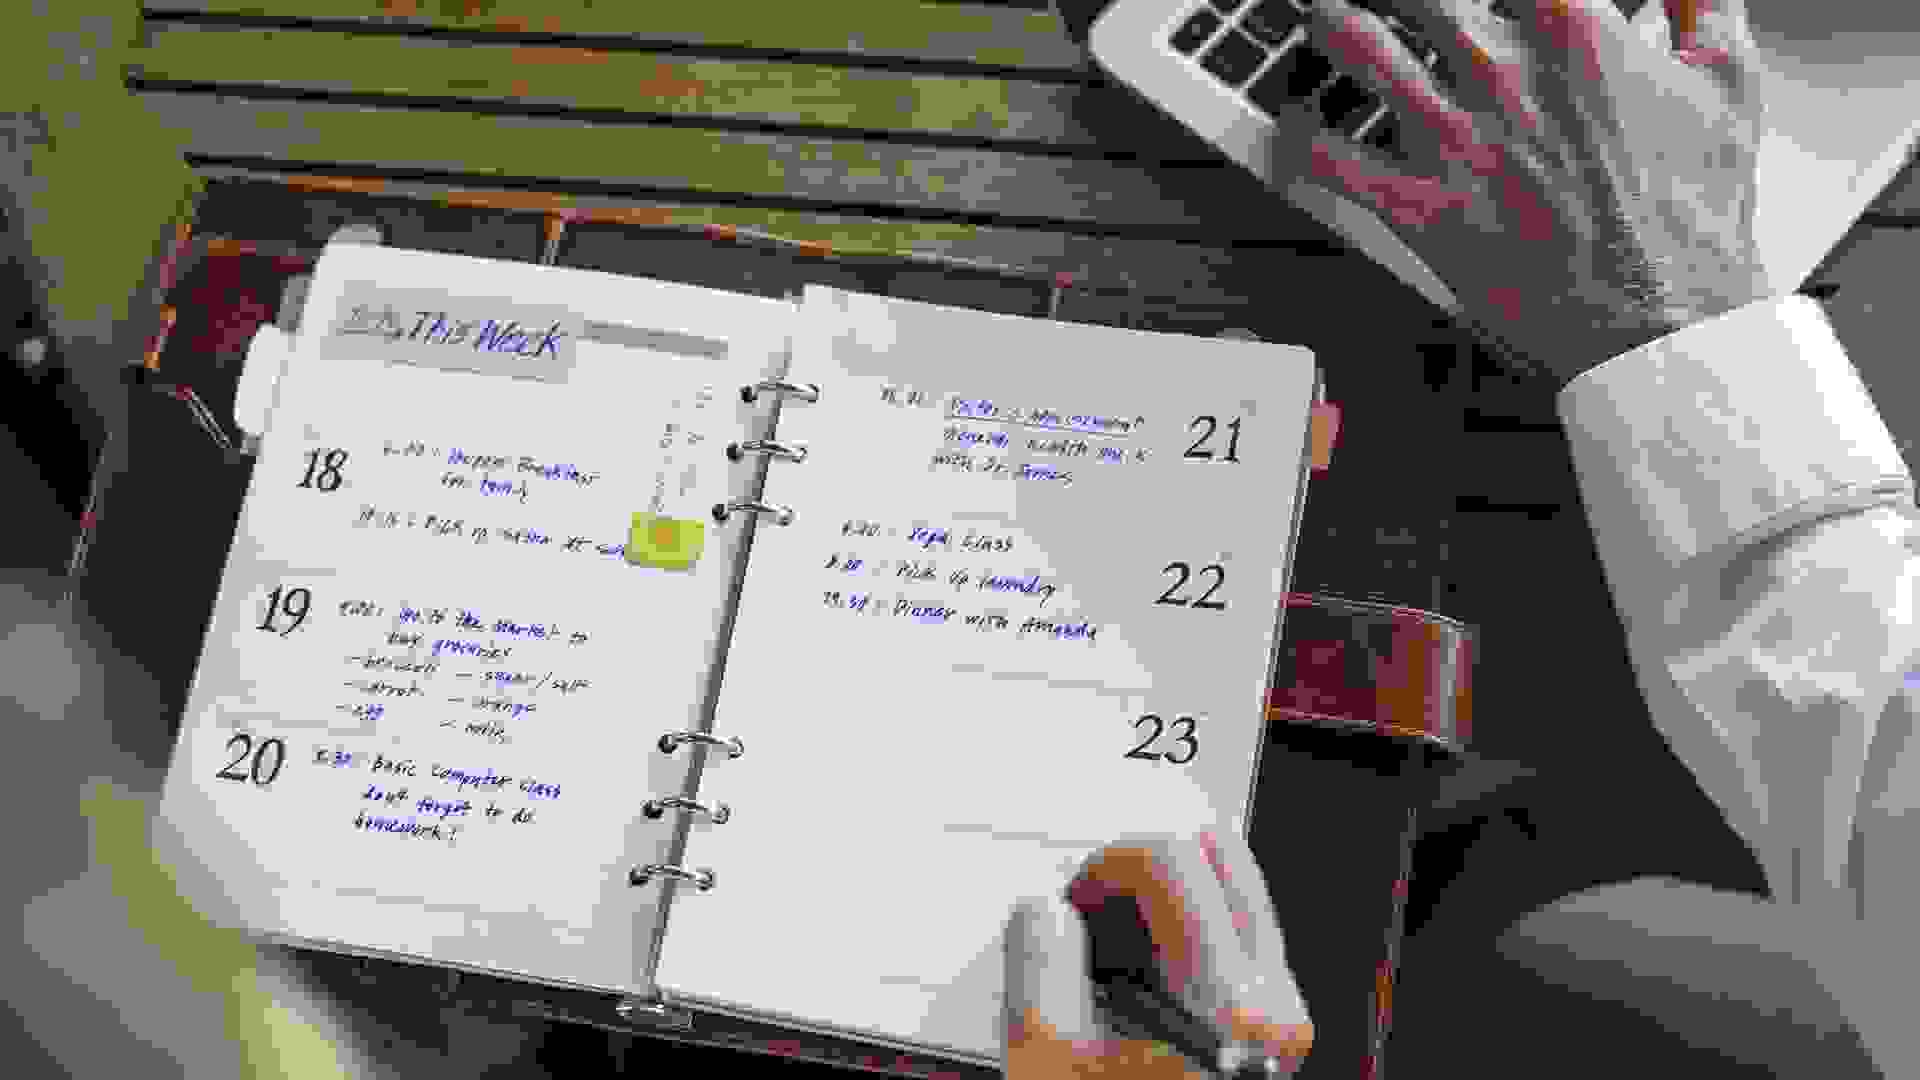 This Week
18
Prepare Breakfast
for family
Pick up at
19
go to the market to
buy groceries
- broccoli - sugar/salt
- carrot - orange
- egg - milk
20
8.30: basic computer class
don't forget to do
homework!
21
Doctor's appointment
General health check
with Dr. James
22
Yoga Class
Pick up laundry
Dinner with Amanda
23